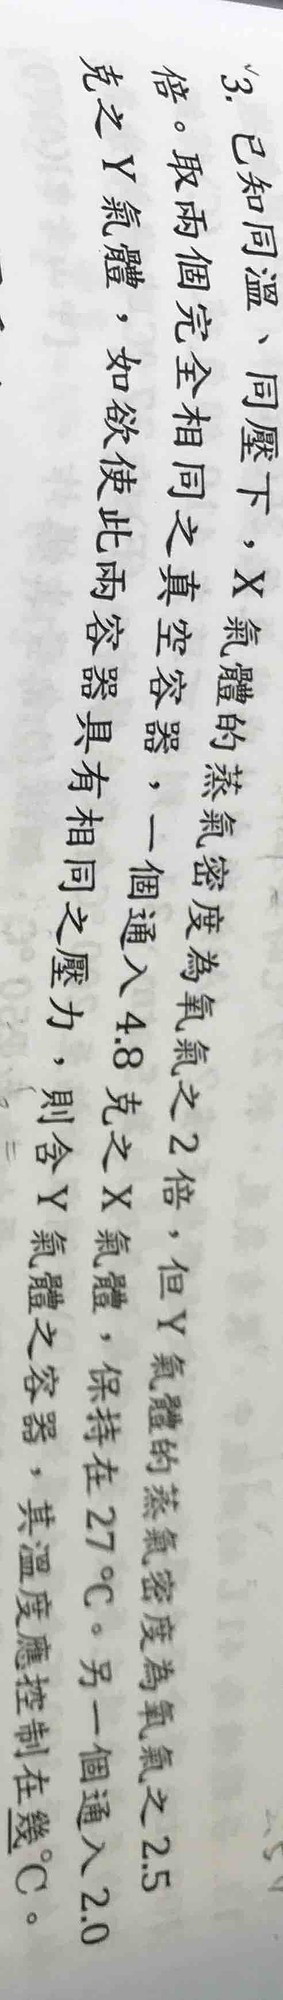 3. 已知同溫、同壓下，X 氣體的蒸氣密度為氧氣之 2 倍，但 Y 氣體的蒸氣密度為氧氣之 2.5
倍。取兩個完全相同之真空容器，一個通入 4.8 克之 X 氣體，保持在 27 ℃。另一個通入 2.0
克之 Y 氣體，如欲使此兩容器具有相同之壓力，則含 Y 氣體之容器，其溫度應控制在幾℃。